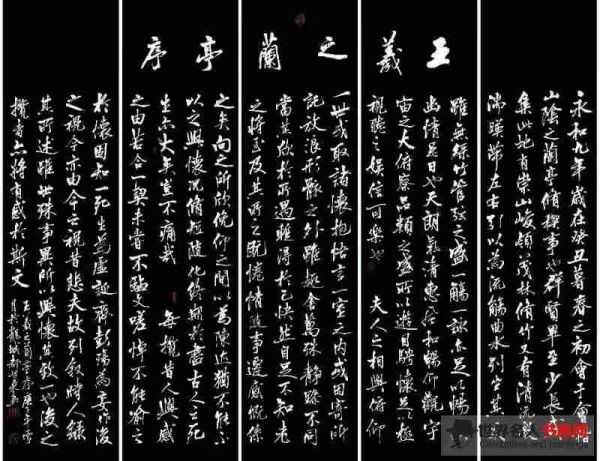 王羲之蘭亭序
永和九年歲在癸丑暮春之初會于會稽
山陰之蘭亭脩禊事也群賢畢至少長咸
集此地有崇山峻領茂林脩竹又有清流激
湍暎帶左右引以為流觴曲水列坐其次
雖無絲竹管弦之盛一觴一詠亦足以暢敘
幽情是日也天朗氣清惠風和暢仰觀宇
宙之大俯察品類之盛所以遊目騁懷足以極
視聽之娛信可樂也 夫人之相與俯仰
一世或取諸懷抱悟言一室之內或因寄所
託放浪形骸之外雖趣舍萬殊靜躁不同
當其欣於所遇暫得於己快然自足不知老
之將至及其所之既惓情隨事遷感慨係
之矣向之所欣俛仰之間以為陳迹猶不能不
以之興懷況脩短隨化終期於盡古人云死
生亦大矣豈不痛哉 每攬昔人興感
之由若合一契未嘗不臨文嗟悼不能喻之
於懷固知一死生為虛誕齊彭殤為妄作後
之視今亦由今之視昔悲夫故列敘時人錄
其所述雖世殊事異所以興懷其致一也後之
攬者亦將有感於斯文
世界名人书画网